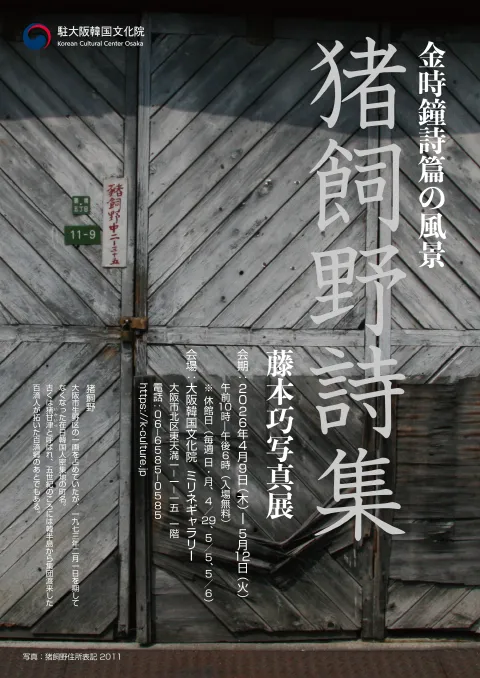 駐大阪韓国文化院
Korean Cultural Center Osaka
金時鐘詩篇の風景
猪飼野詩集
藤本巧写真展
会期:2026年4月9日(木)ー5月12日(火)
午前10時ー午後6時(入場無料)
※休館日(毎週日・月、4/29、5/5、5/6)
会場:大阪韓国文化院 ミリネギャラリー
大阪市北区東天満一ー一ー一五 一階
電話:06ー6585ー0585
https://k-culture.jp
猪飼野
大阪市生野区の一画を占めていたが、一九七三年二月一日を期して
なくなった在日韓国人密集地の町名。
古くは猪甘津と呼ばれ、五世紀のころには韓半島から集団渡来した
百済人が拓いた百済郷のあとでもある。
11-9
猪飼野中二
写真:猪飼野住所表記 2011